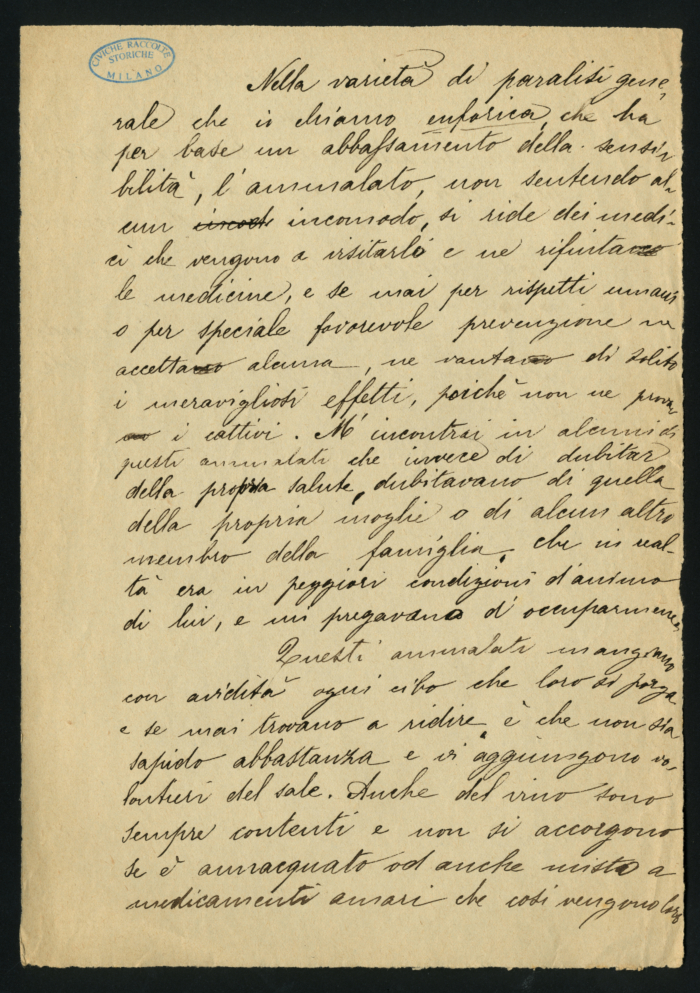 CIVICHE RACCOLTE
STORICHE
MILANO
Nella varietà di paralisi gene-
rale che io chiamo euforica, che ha
per base un abbassamento della sensi-
bilità, l'ammalato, non sentendo al-
cun incomodo, si ride dei medi-
ci che vengono a visitarlo e ne rifiuta
le medicine, e se mai per rispetti umani
o per speciale favorevole prevenzione ne
accetta alcuna, ne vanta di solito
i meravigliosi effetti, poichè non ne prova
i cattivi. M'incontrai in alcuni di
questi ammalati che invece di dubitar
della propria salute, dubitavano di quella
della propria moglie o di alcun altro
membro della famiglia, che in real-
tà era in peggiori condizioni d'animo
di lui, e mi pregavano d'occuparmene.
Questi ammalati mangiano
con avidità ogni cibo che loro si porga
e se mai trovano a ridire è che non sia
sapido abbastanza e vi aggiungono vo-
lontieri del sale. Anche del vino sono
sempre contenti e non si accorgono
se è annacquato od anche misto a
medicamenti amari che così vengono loro